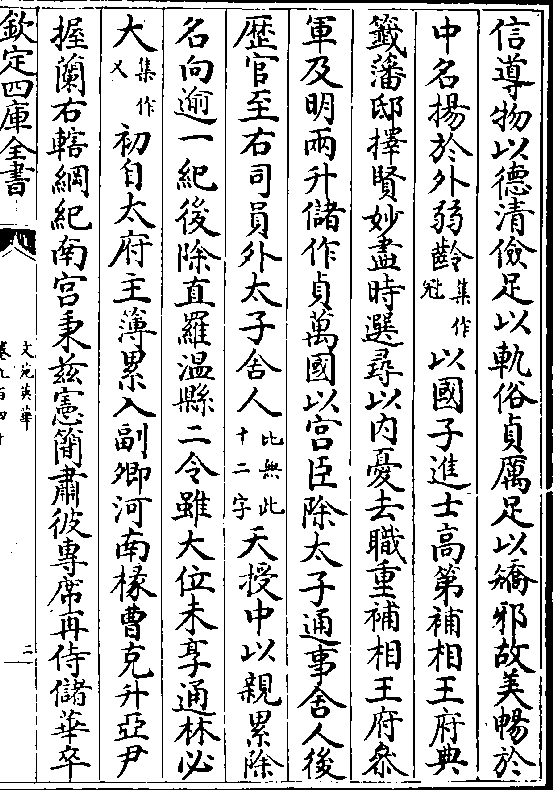 信導物以德清儉足以軌俗貞厲足以矯邪故美暢於
中名揚於外弱齡集作冠以國子進士高第補相王府典
籤藩邸擇賢妙盡時選尋以内憂去職重補相王府叅
軍及明兩升儲作貞萬國以宫臣除太子通事舍人後
歴官至右司員外太子舍人比無此十二字天授中以親累除
名向逾一紀後除直羅温縣二令雖大位未享通林必
大集作又初自太府主薄累入副卿河南椽曹克升亞尹
握蘭右轄綱紀南宫秉兹憲簡肅彼專席再侍儲華卒
欽定四庫全書
文苑英華
卷九百四十
二